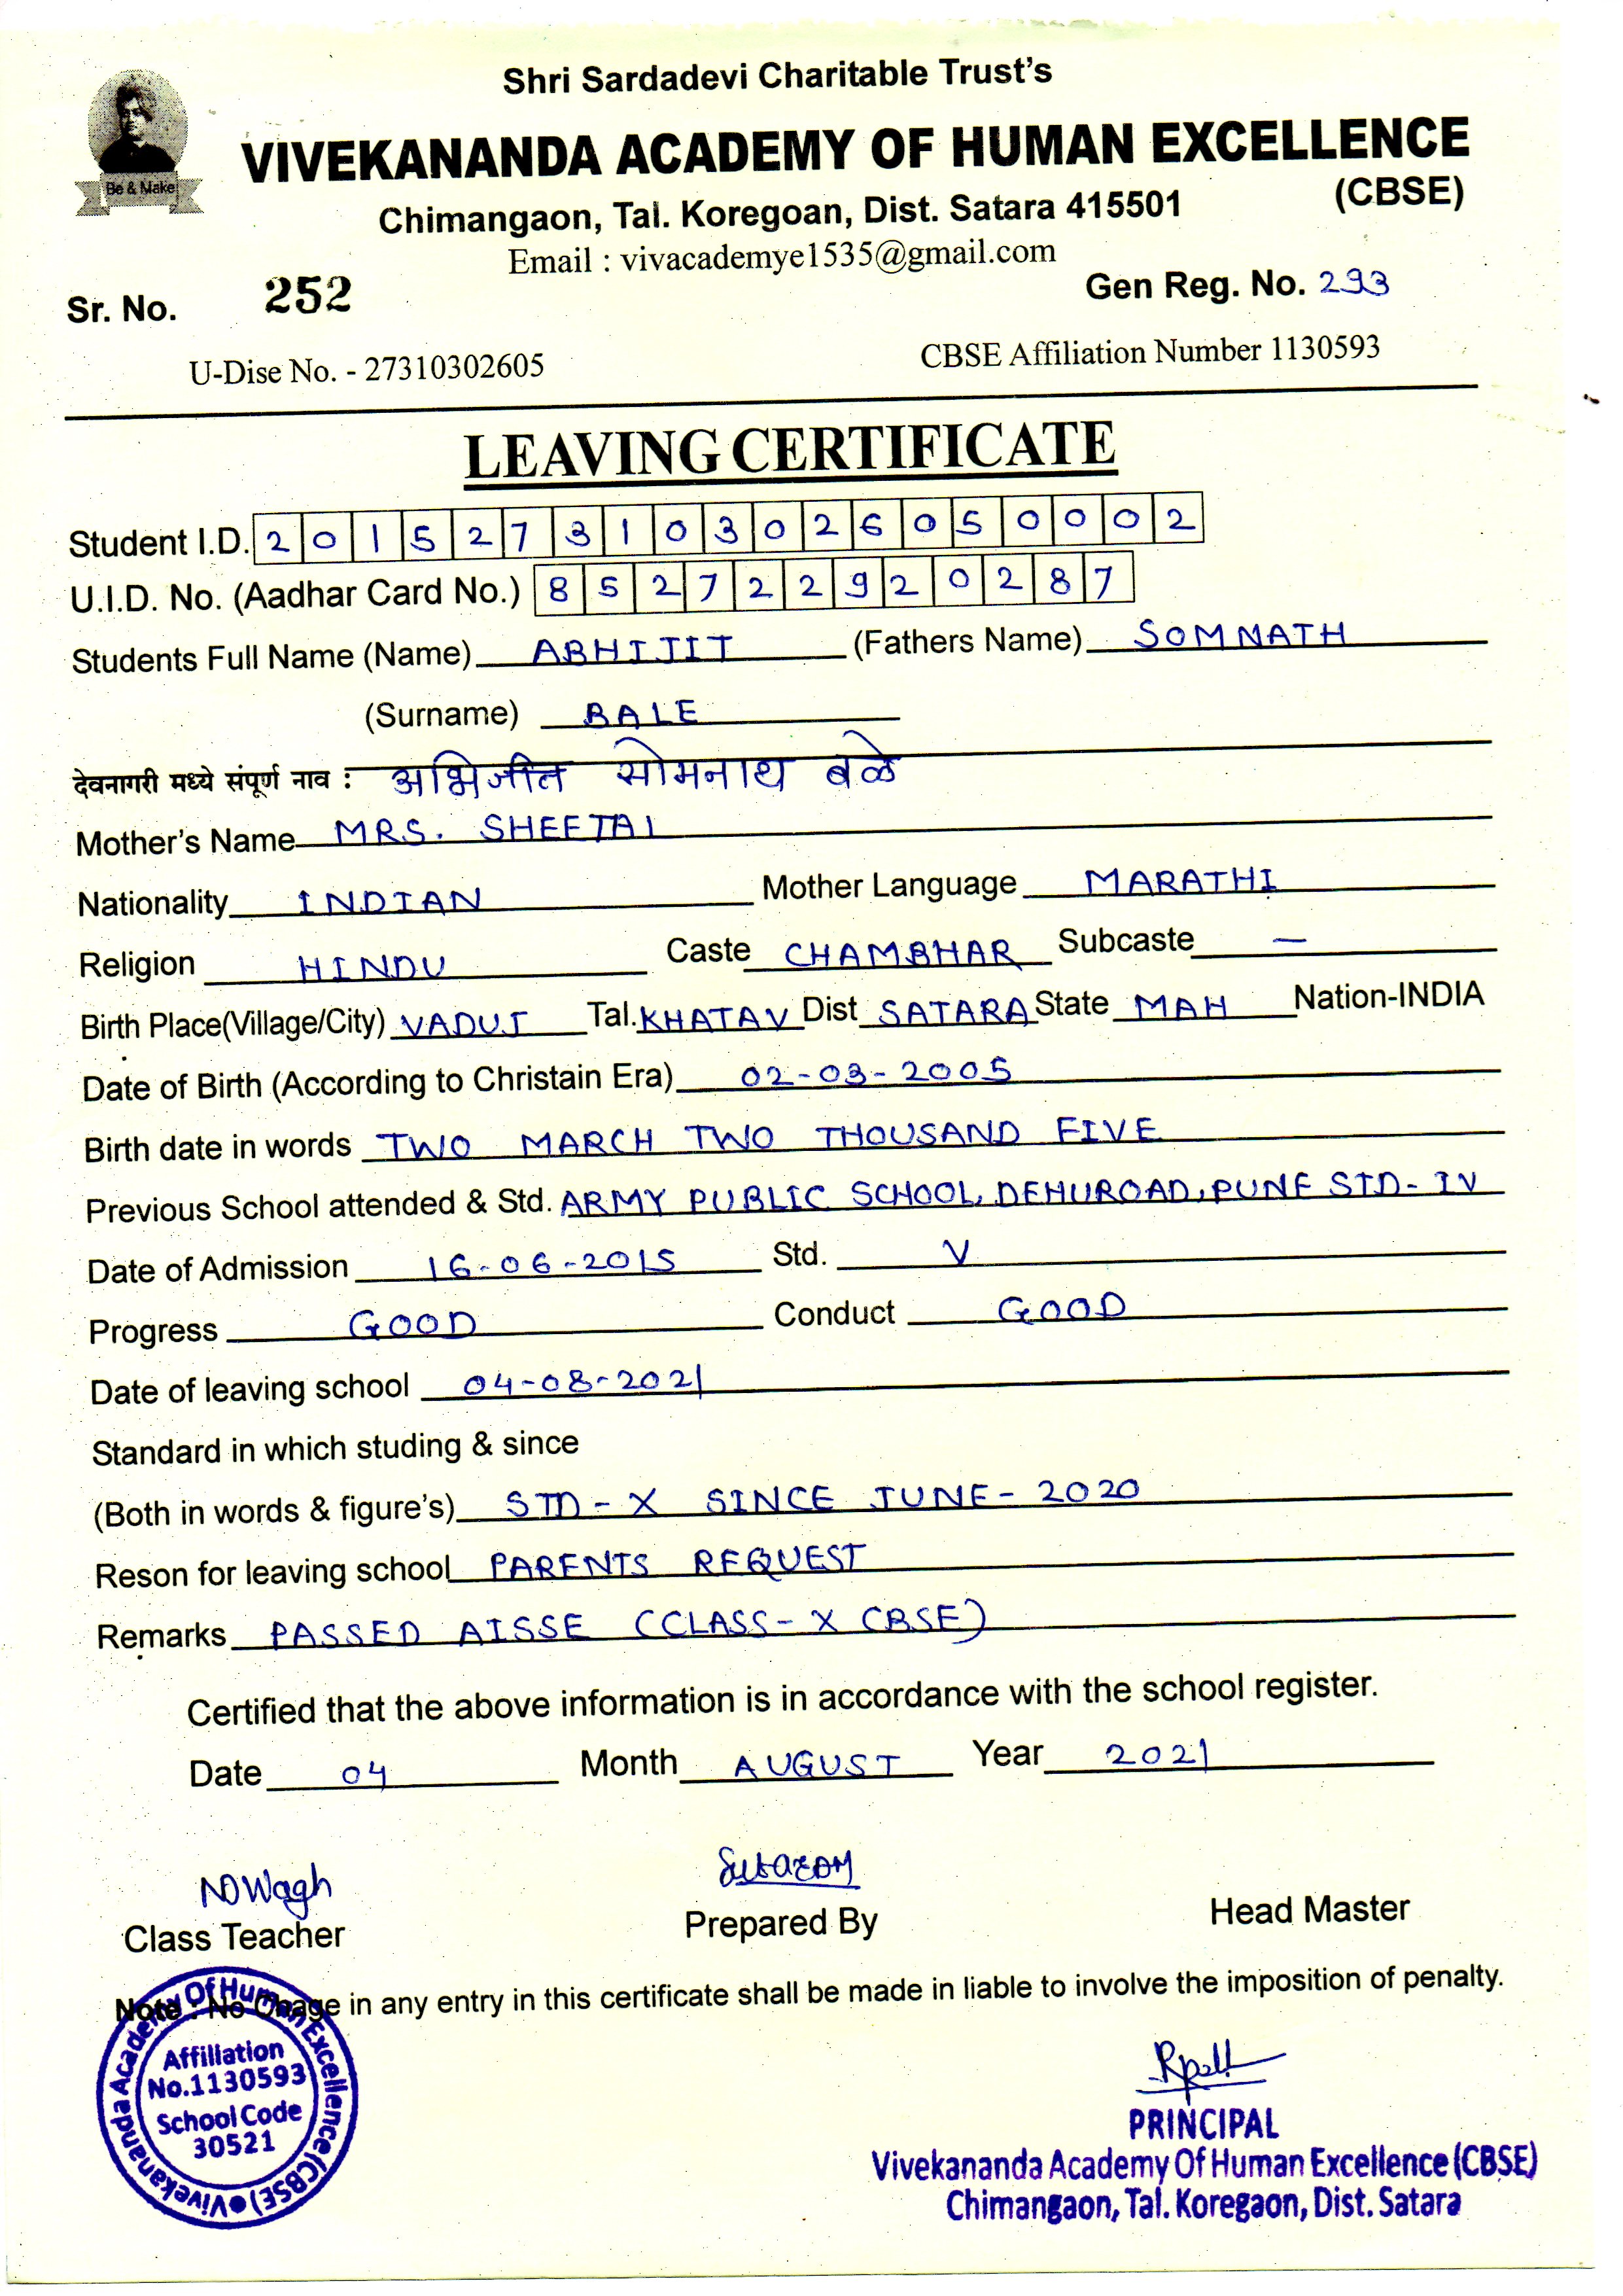 Shri Sardadevi Charitable Trust's
VIVEKANANDA ACADEMY OF HUMAN EXCELLENCE
(CBSE)
Be & Make
Chimangaon, Tal. Koregoan, Dist. Satara 415501
Email : vivacademye1535@gmail.com
Sr. No. 252 Gen Reg. No. 293
U-Dise No. - 27310302605 CBSE Affiliation Number 1130593
LEAVING CERTIFICATE
Student I.D. 2015273103026050002
U.I.D. No. (Aadhar Card No.) 852722920287
Students Full Name (Name) ABHIJIT (Fathers Name) SOMNATH
(Surname) BALE
देवनागरी मध्ये संपूर्ण नाव : अभिजीत सोमनाथ बळे
Mother's Name MRS. SHEETAL
Nationality INDIAN Mother Language MARATHI
Religion HINDU Caste CHAMBHAR Subcaste —
Birth Place(Village/City) VADUJ Tal. KHATAV Dist SATARA State MAH Nation-INDIA
Date of Birth (According to Christain Era) 02-03-2005
Birth date in words TWO MARCH TWO THOUSAND FIVE
Previous School attended & Std. ARMY PUBLIC SCHOOL, DEHUROAD, PUNE STD- IV
Date of Admission 16-06-2015 Std. V
Progress GOOD Conduct GOOD
Date of leaving school 04-08-2021
Standard in which studing & since
(Both in words & figure's) STD - X SINCE JUNE- 2020
Reson for leaving school PARENTS REQUEST
Remarks PASSED AISSE (CLASS- X CBSE)
Certified that the above information is in accordance with the school register.
Date 04 Month AUGUST Year 2021
NDWagh
Class Teacher Prepared By Head Master
Note : No Chage in any entry in this certificate shall be made in liable to involve the imposition of penalty.
Vivekananda Academy Of Human Excellence (CBSE)
Affiliation
No.1130593
School Code
30521
PRINCIPAL
Vivekananda Academy Of Human Excellence (CBSE)
Chimangaon, Tal. Koregaon, Dist. Satara